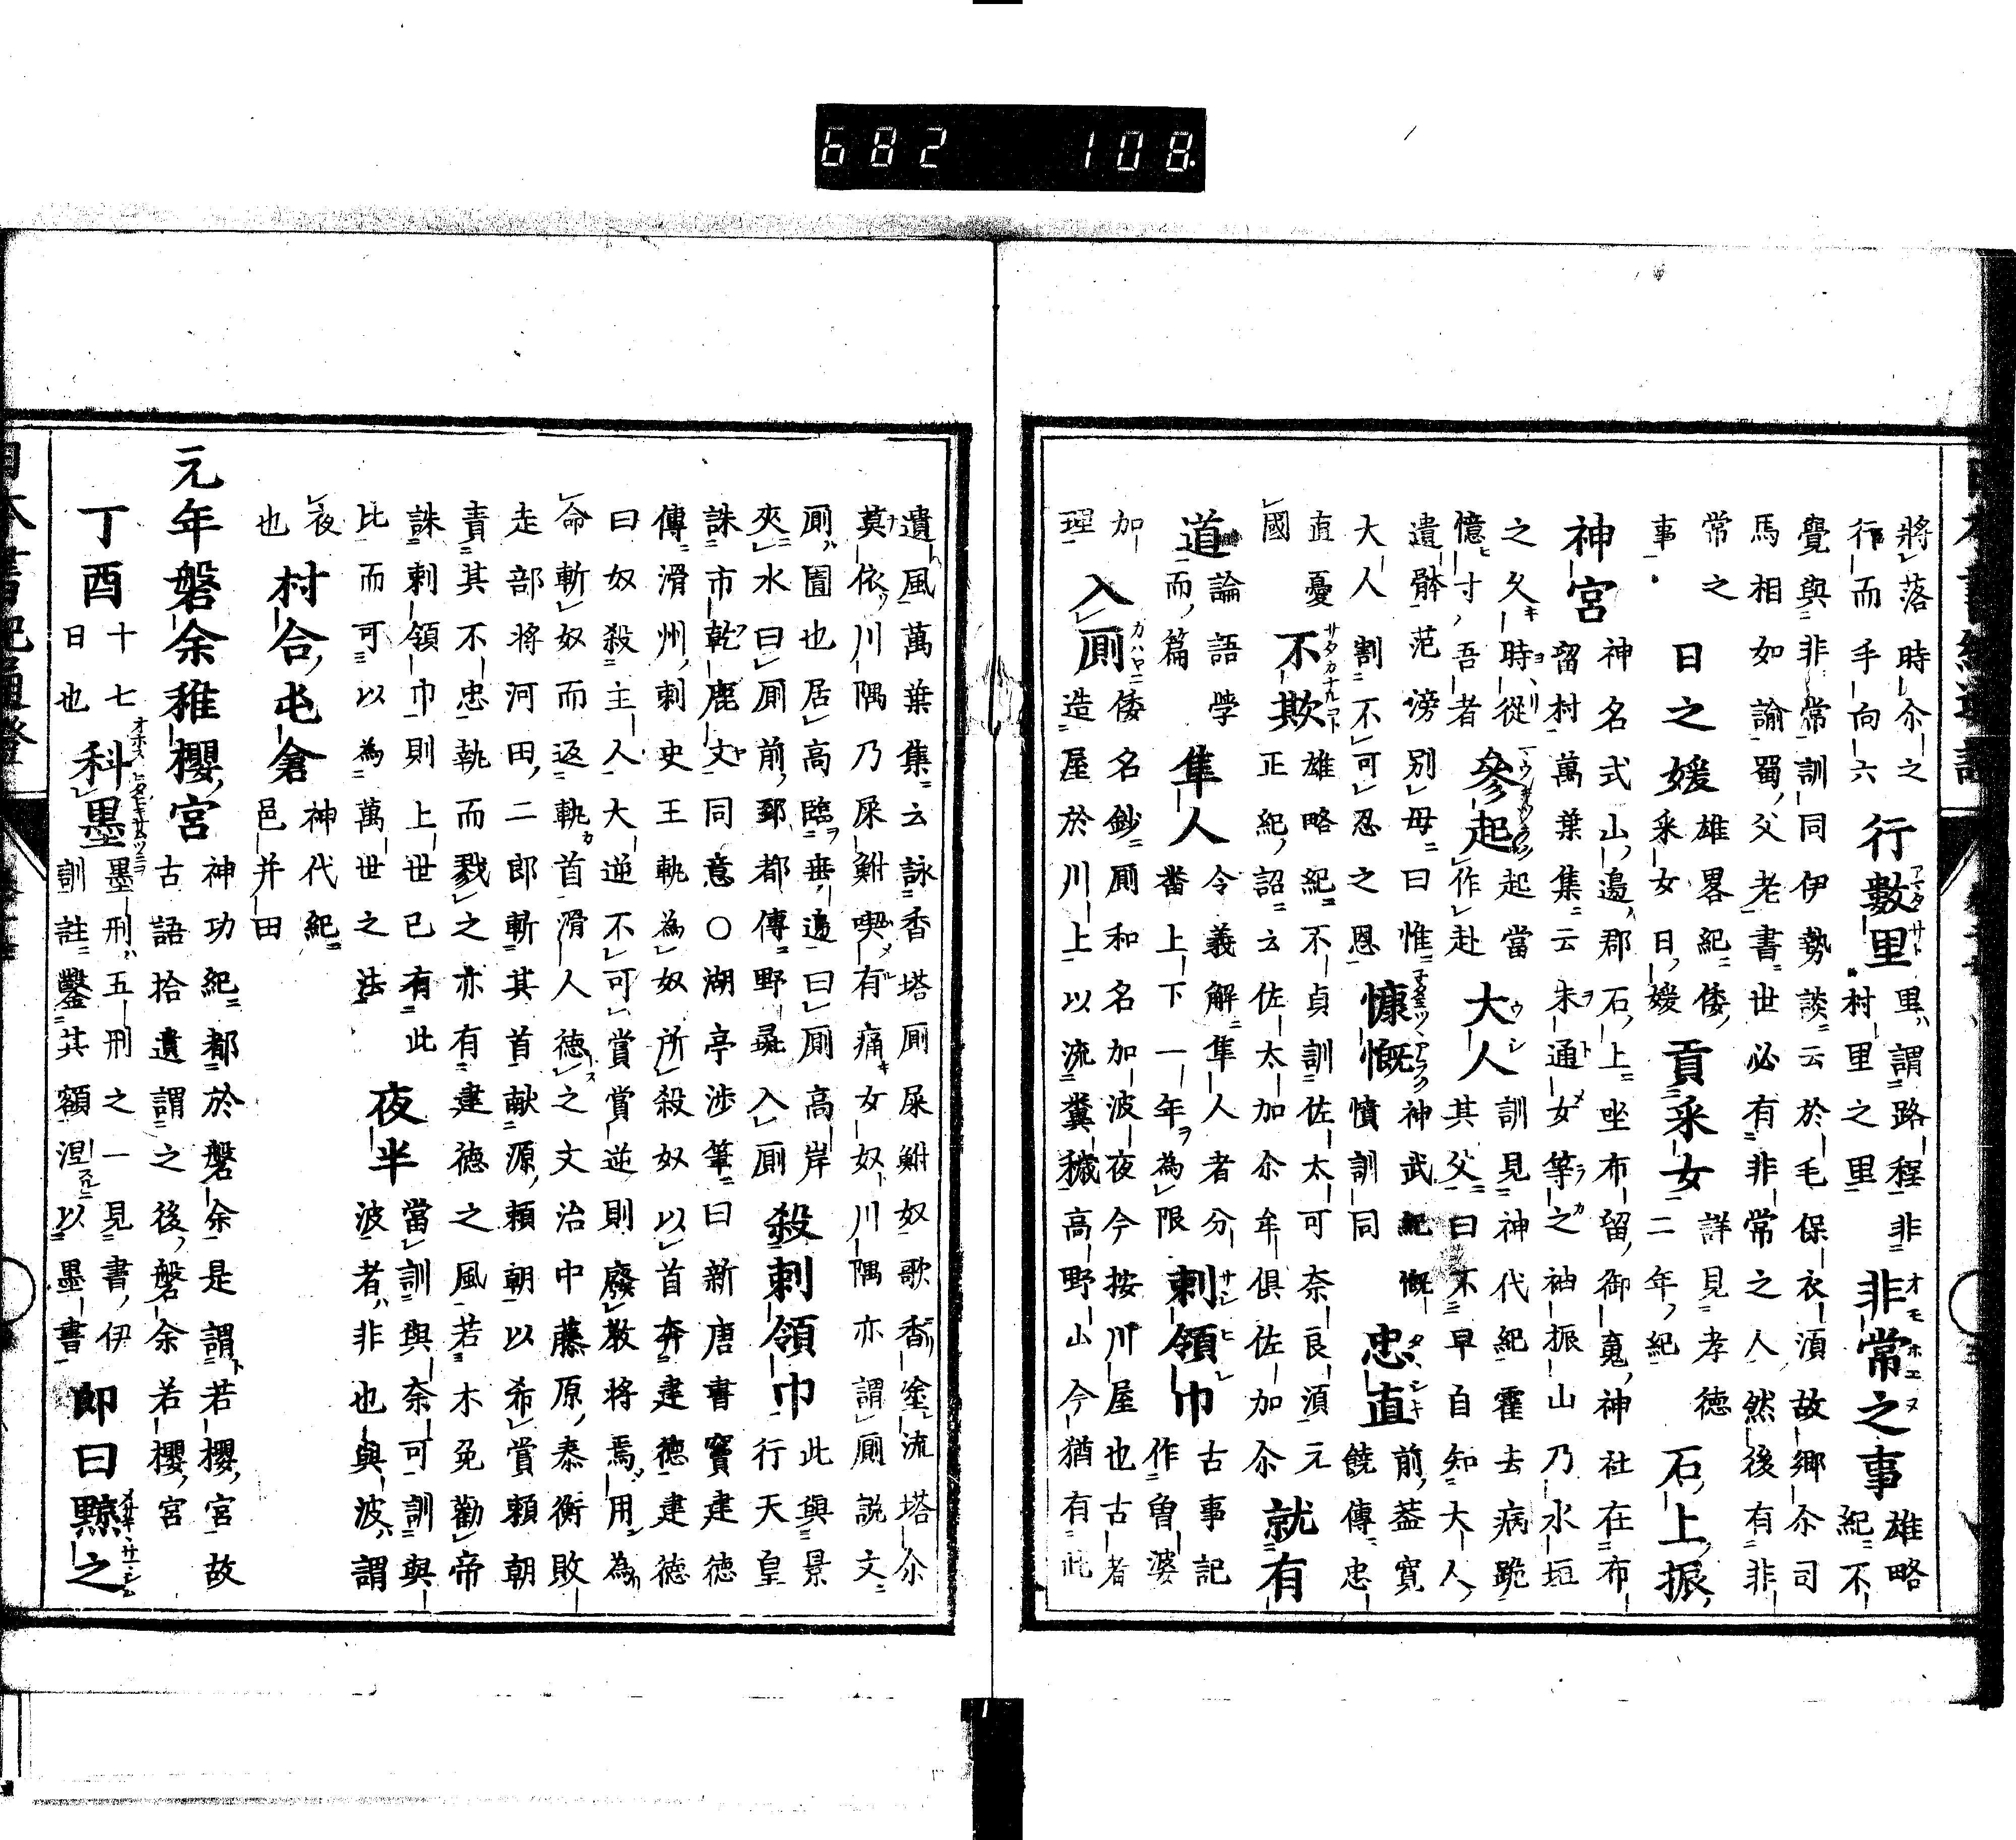 將落時尒之行而手向六 行數里 里謂路程非村里之里 非常之事 雄略紀不
覺與非常訓同伊勢談云於毛保衣湏故郷尒司馬相如諭蜀父老書世必有非常之人然後有非
常之事 日之媛 雄畧紀倭采女日媛 貢采女 詳見孝徳二年紀 石上振
神宮 神名式山邊郡石上坐布留御䰟神社在布留村萬葉集云未通女等之袖振山乃水垣
之久時從憶寸吾者 參起 起當作赴 大人 訓見神代紀霍去病跪其父曰不早自知大人
遺骵范滂別母曰惟大人割不可忍之恩 慷慨 神武紀慨憤訓同 忠直 前蓋寛饒傳忠
直憂國 不欺 雄略紀不貞訓佐太可奈良湏元正紀詔云佐太加尒牟俱佐加尒 就有
道 論語學而篇 隼人 令義解隼人者分番上下一年為限 刺領巾 古事記作曽婆
加理 入厠 倭名鈔厠和名加波夜今按川屋也古者造屋於川上以流糞穢高野山今猶有此
遺風萬葉集云詠香塔厠屎鮒奴歌香塗流塔尒莫依川隅乃屎鮒喫有痛女奴川隅亦謂厠説文
厠圊也居高臨垂邉曰厠高岸夾水曰厠前郅都傳野彘入厠 殺刺領巾 此與景行天皇
誅市乾鹿文同意○湖亭渉筆曰新唐書竇建徳傳滑州刺史王軌為奴所殺奴以首奔建徳建徳
曰奴殺主人大逆不可賞賞逆則廢教将焉用為命斬奴而返軌首滑人徳之文治中藤原泰衡敗
走部将河田二郎斬其首献源頼朝以希賞頼朝責其不忠執而戮之亦有建徳之風若木免勸帝
誅刺領巾則上世已有此比而可以為萬世之法 夜半 當訓與奈可訓與波者非也與波謂
夜也 村合屯倉 神代紀邑并田
元年磐余稚櫻宮 神功紀都於磐余是謂若櫻宮故古語拾遺謂之後磐余若櫻宮
丁酉 十七日也 科墨 墨刑五刑之一見書伊訓註鑿其額涅以墨書 即日黥之
682 108